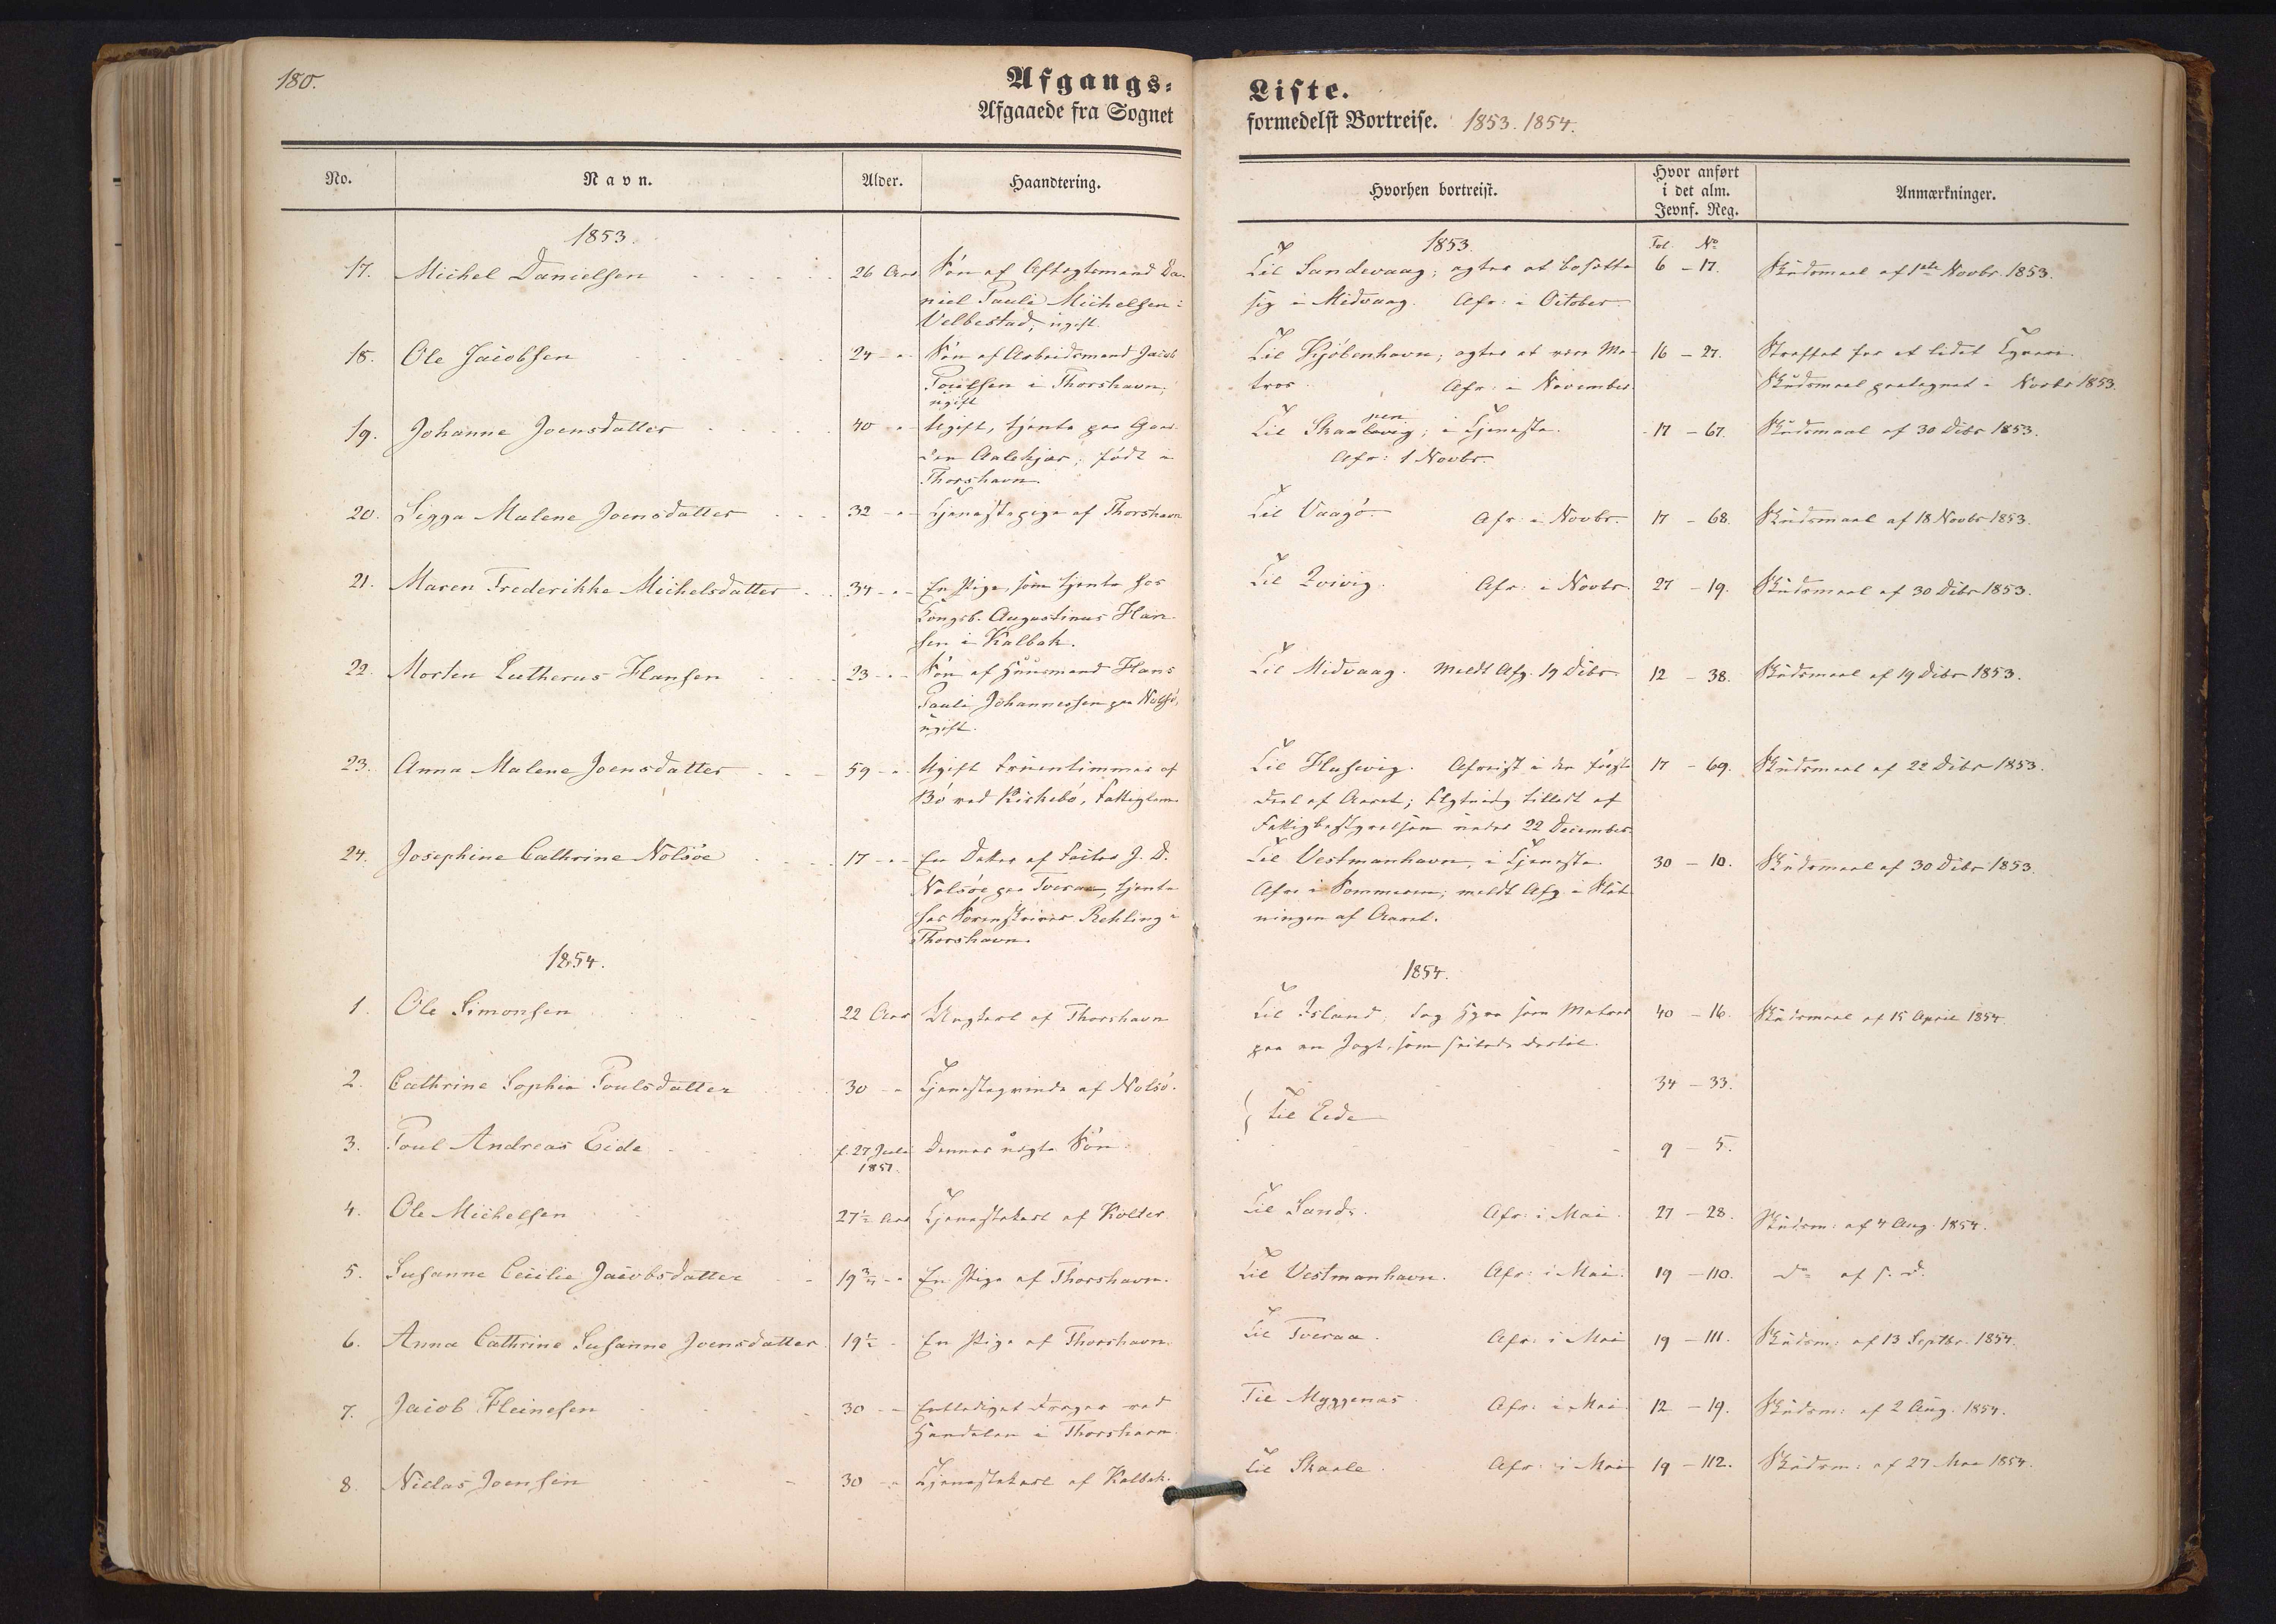 180.
Afgangs-
Afgaaede fra Sognet
No.
Navn.
Alder.
Haandtering.
1853.
17. Michel Danielsen 26 Aar Søn af Aftægtsmand Da-
niel Pauli Michelsen i
Velbestad, ugift.
18. Ole Jacobsen 24 - " - Søn af Arbeidsmand Jacob
Poulsen i Thorshavn,
ugift
19. Johanne Joensdatter 40 - " Ugift, tjente paa Gaar-
den Aalekjær; født i
Thorshavn.
20. Sigga Malene Joensdatter 32 - " - Tjenestepige af Thorshavn
21. Maren Frederikke Michelsdatter 34 - " - En Pige, som tjente hos
Kongsb. Augustinus Han-
sen i Kalbak.
22. Morten Lutherus Hansen 23 - " - Søn af Huusmand Hans
Pauli Johannessen paa Nolsø,
ugift.
23. Anna Malene Joensdatter 59 - " Ugift Fruentimmer af
Bø ved Kirkebø, Fattiglem
24. Josephine Cathrine Nolsøe 17 - " - En Datter af Factor J. D.
Nolsøe paa Tveraa, tjente
hos Sorenskriver Rehling i
Thorshavn.
1854.
1. Ole Simonsen 22 Aar Ungkarl af Thorshavn
2. Cathrine Sophia Poulsdatter 30 - " Tjenesteqvinde af Nolsø.
3. Poul Andreas Eide f. 27 Juli Dennes uægte Søn.
1851.
4. Ole Michelsen 27½ Aar Tjenestekarl af Kolter
5. Susanne Cecilie Jacobsdatter 19¾ - " En Pige af Thorshavn.
6. Anna Cathrine Susanne Joensdatter 19½ - En Pige af Thorshavn.
7. Jacob Heinesen 30 - - Entlediget Drager ved
Handelen i Thorshavn.
8. Niclas Joensen 30 - " Tjenestekarl af Kalbak.
Liste.
formedelst Bortreise. 1853. 1854.
Hvorhen bortreist.
Hvor anført
i det alm.
Jevnf. Reg.
Anmærkninger.
1853. Fol. No
Til Sandevaag; agter at bosætte 6 - 17. Skudsmaal af 1ste Novbr. 1853.
sig i Midvaag. Afr: i October
Til Kjøbenhavn; agter at være Ma- 16 - 27. Straffet for et lidet Tyveri.
tros. Afr: i November Skudsmaal paategnet i Novbr 1853.
pen
Til Skaalevig; i Tjeneste. 17 - 67. Skudsmaal af 30 Dcbr 1853.
Afr: 1 Novbr.
Til Vaagø Afr: i Novbr. 17 - 68. Skudsmaal af 18 Novbr 1853.
Til Qvivig. Afr: i Novbr. 27 - 19. Skudsmaal af 30 Dcbr 1853.
Til Midvaag. Meldt Afg. 19 Dcbr. 12 - 38. Skudsmaal af 19 Dcbr 1853.
Til Husevig. Afreist i den første 17 - 69. Skudsmaal af 22 Dcbr 1853.
Deel af Aaret; Flytning tilladt af
Fattigbestyrelsen under 22 December
Til Vestmanhavn, i Tjeneste 30 - 10. Skudsmaal af 30 Dcbr 1853.
Afr: i Sommeren; meldt Afg. i Slut-
ningen af Aaret.
1854.
Til Island, tog Hyre som Matros 40 - 16. Skudsmaal af 15 April 1854.
paa en Jagt, som seilede dertil.
34 - 33.
Til Eide
9 - 5.
Til Sand. Afr: i Mai. 27 - 28. Skudsm: af 4 Aug. 1854.
Til Vestmanhavn. Afr: i Mai. 19 - 110. Do af s. D.
Til Tveraa. Afr: i Mai 19 - 111. Skudsm: af 13 Septbr. 1854.
Til Myggenæs. Afr: i Mai. 12 - 19. Skudsm: af 2 Aug. 1854.
Til Skaale. Afr: i Mai 19 - 112. Skudsm: af 27 Mai 1854.